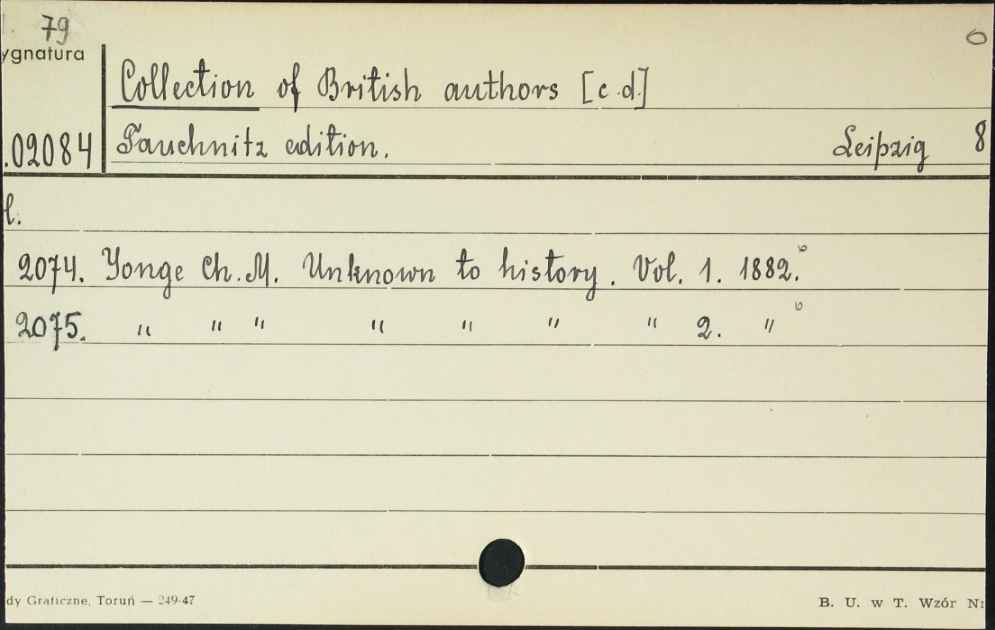 79
ygnatura
6
Collection of British authors [c.d.]
.02084 Tauchnitz edition. Leipzig 8
l.
2074. Yonge Ch. M. Unknown to history. Vol. 1. 1882.
2075. " " " " " " " 2. "
dy Graficzne, Toruń — 249-47
B. U. w T. Wzór N